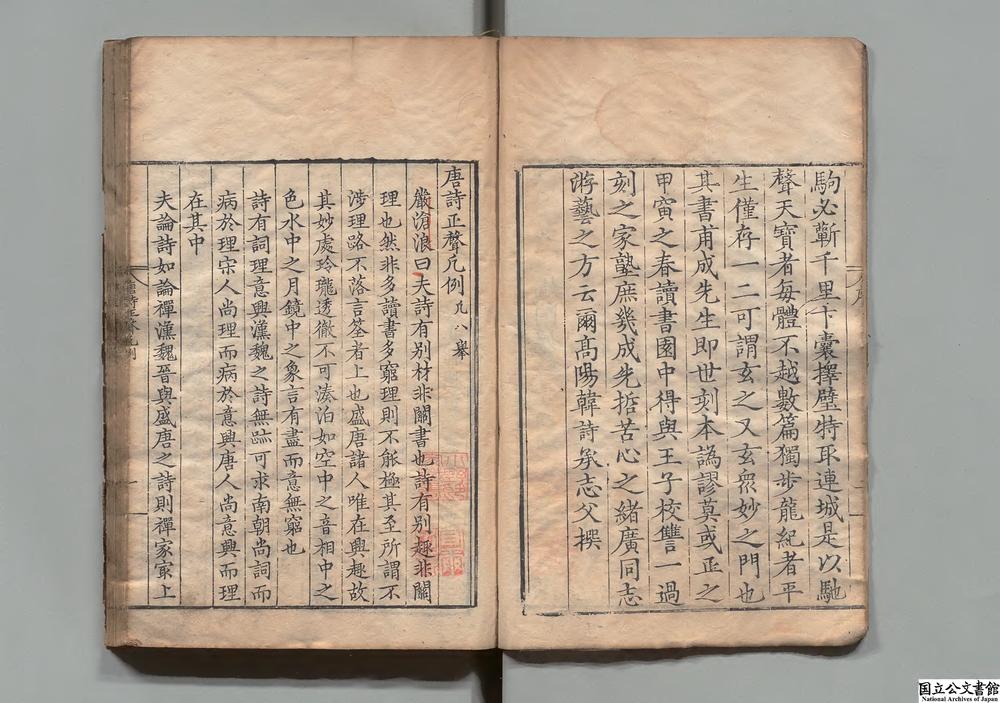 駒必蘄千里卞囊擇璧特取連城是以馳
聲天寶者每體不越數篇獨步龍紀者平
生僅存一二可謂玄之又玄衆妙之門也
其書甫成先生即世刻本譌謬莫或正之
甲寅之春讀書園中得與王子校讐一過
刻之家塾庶幾成先哲苦心之緒廣同志
游藝之方云爾高陽韓詩承志父撰
唐詩正聲凡例凡八舉
嚴滄浪曰夫詩有别材非關書也詩有别趣非關
理也然非多讀書多窮理則不能極其至所謂不
涉理路不落言筌者上也盛唐諸人唯在興趣故
其妙處玲瓏透徹不可湊泊如空中之音相中之
色水中之月鏡中之象言有盡而意無窮也
詩有詞理意興漢魏之詩無跡可求南朝尚詞而
病於理宋人尚理而病於意興唐人尚意興而理
在其中
夫論詩如論禪漢魏晉與盛唐之詩則禪家冣上
国立公文書館
National Archives of Japan